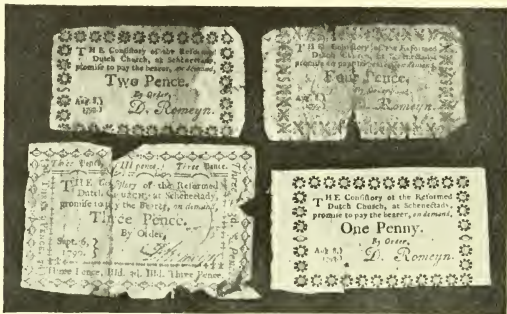 THE Consistory of the Reformed
Dutch Church, at Schenectady,
promise to pay the bearer, on demand,
Two Pence.
By Order,
Aug. 8,
D. Romeyn.
THE Consistory of the Reformed
Dutch Church, at Schenectady
promise to pay the bearer, on demand,
Four Pence.
By Order,
Aug. 8,
D. Romeyn.
Three Pence. III pence. Three Pence.
THE Consistory of the Reformed
Dutch CHURCH, at Schenectady,
promise to pay the BEARER, on demand,
Three Pence.
By Order,
Sept. 6,
1790.
Three Pence, IIId. IIId. Three Pence.
THE Consistory of the Reformed
Dutch Church, at Schenectady,
promise to pay the bearer, on demand,
One Penny.
By Order,
Aug. 8,
D. Romeyn.